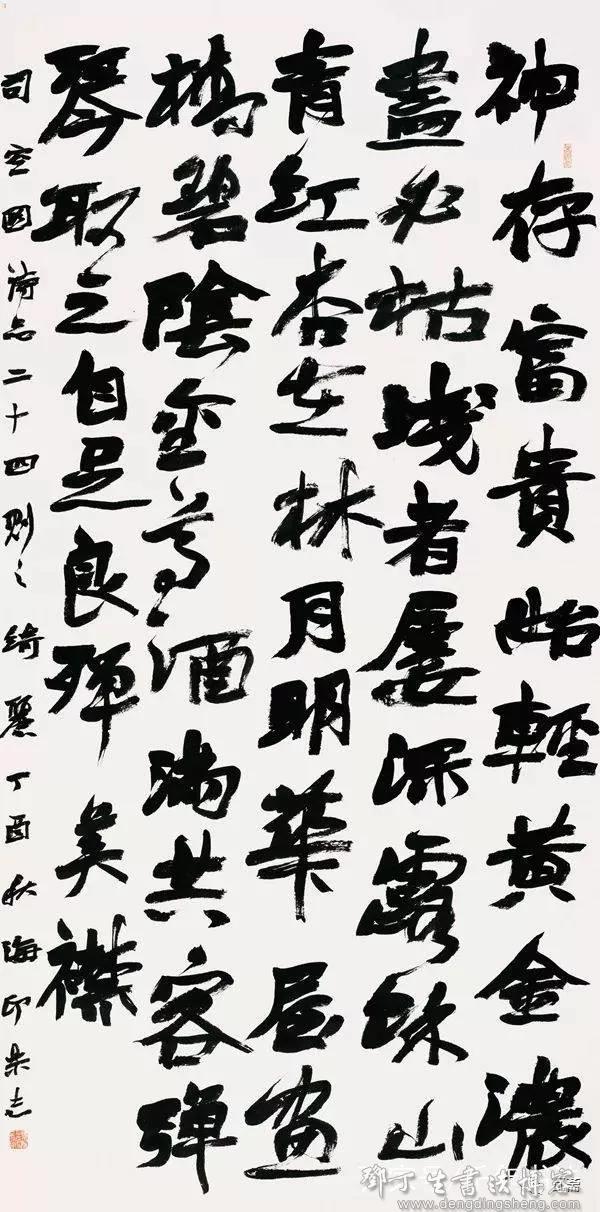 神存富貴始輕黃金濃
盡必枯淺者屢深露餘山
青紅杏在林月明華屋畫
橋碧陰金尊酒滿共客彈
琴取之自足良殫美襟
司空圖詩品二十四則之綺麗丁酉秋海印朱志
鄧丁生書法博客
www.dengdingsheng.com